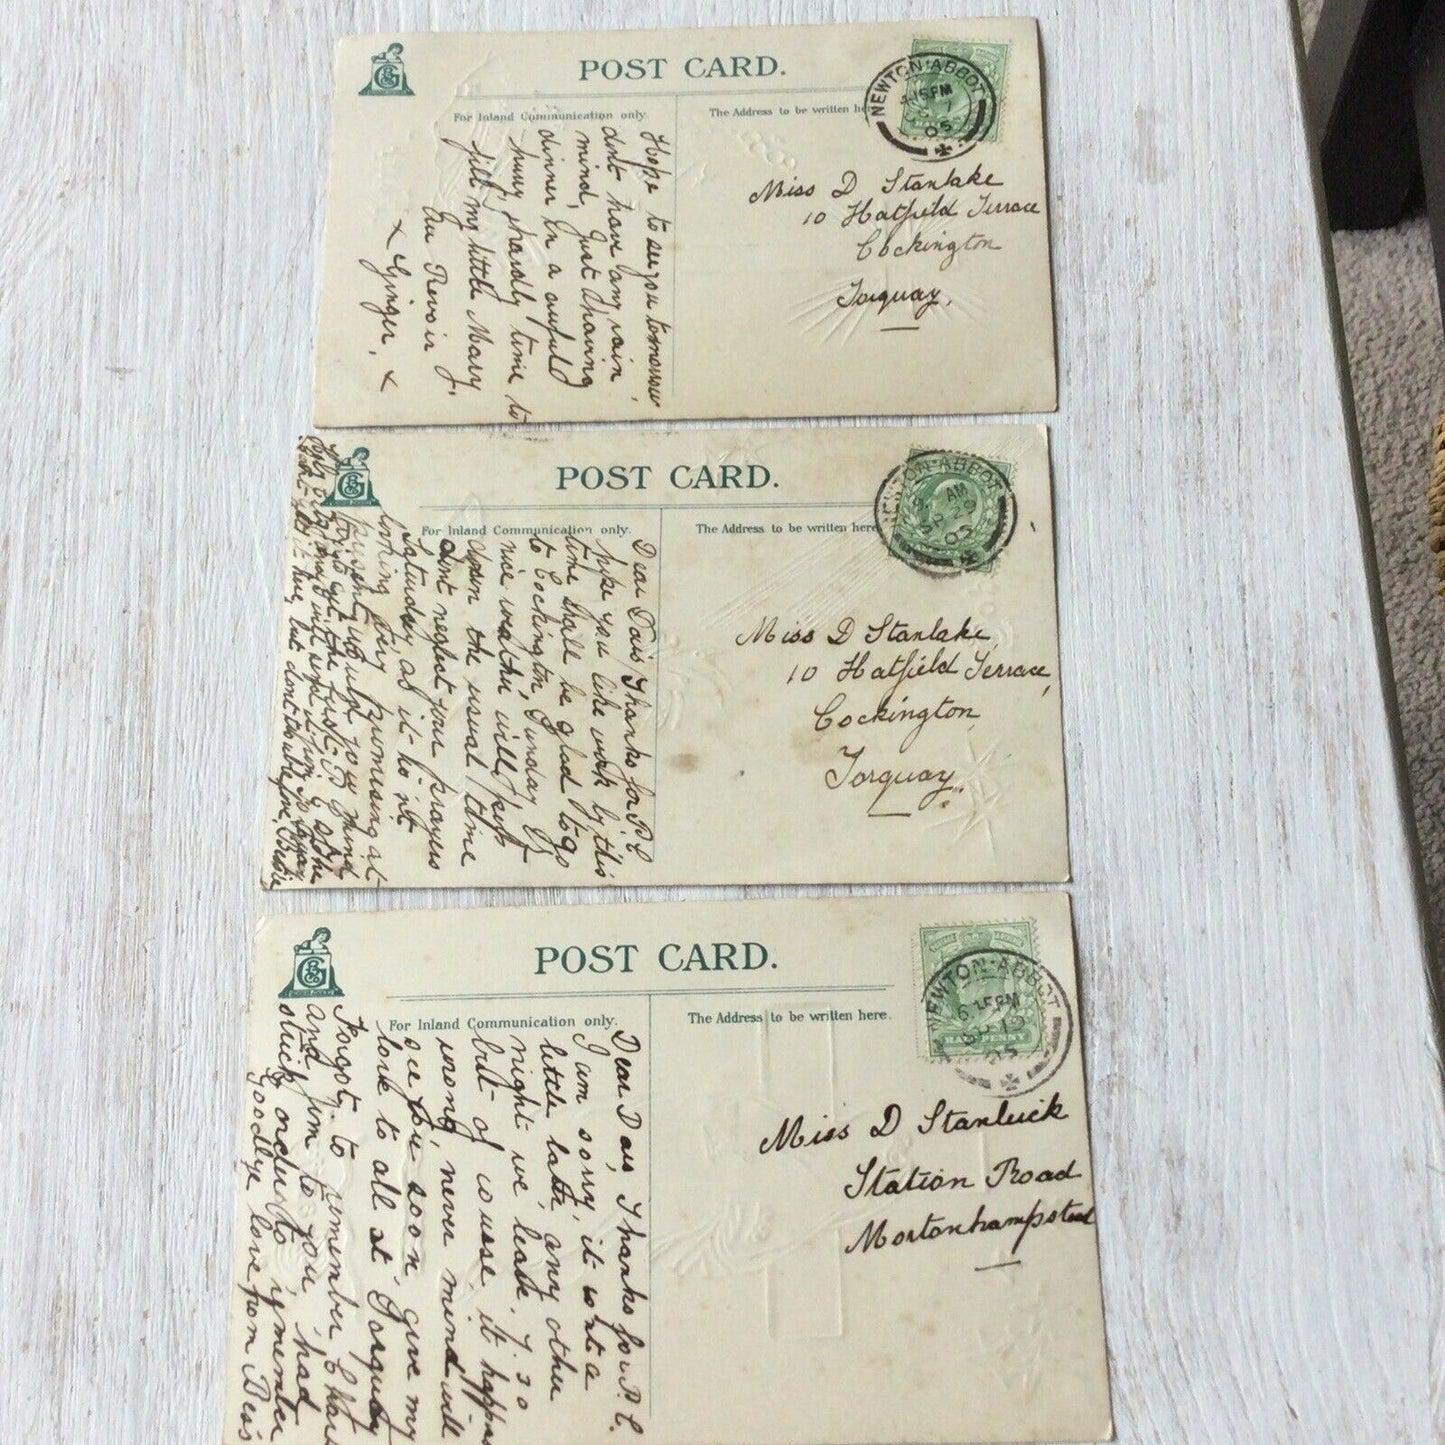 POST CARD.
For Inland Communication only.
The Address to be written here
NEWTON·ABBOT
15PM
7
05
Hope to see you tomorrow
dont have any rain,
mind, Just having
dinner in a awfuld
hurry, hardly time to
fill my little Mary,
Au Revoir
x Ginger. x
Miss D Stanlake
10 Hatfield Terrace
Cockington
Torquay.
POST CARD.
For Inland Communication only.
The Address to be written here
NEWTON·ABBOT
AM
05
Dear Dais, Thanks for P.C
hope you like work by this
time shall be glad to go
to Cockington, Sunday, if
nice weather, will
upon the usual time
dont neglect your prayers
Saturday as it is not
looking very promising at
present, would you mind
to get the
but dont trouble, love, Bessie
Miss D Stanlake,
10 Hatfield Terrace,
Cockington,
Torquay.
POST CARD.
For Inland Communication only.
The Address to be written here.
NEWTON·ABBOT
6.15PM
SP 19
05
HALFPENNY
Dear Dais, Thanks for P.C.
I am sorry, it is a
little later any other
night we leave 7.30
but of course it happens
wrong, never mind will
see you soon, give my
love to all at Torquay
Forgot to remember
and Jim to you, had
stuck order to remember
Goodbye love from Bess
Miss D Stanluick
Station Road
Mortonhampstead